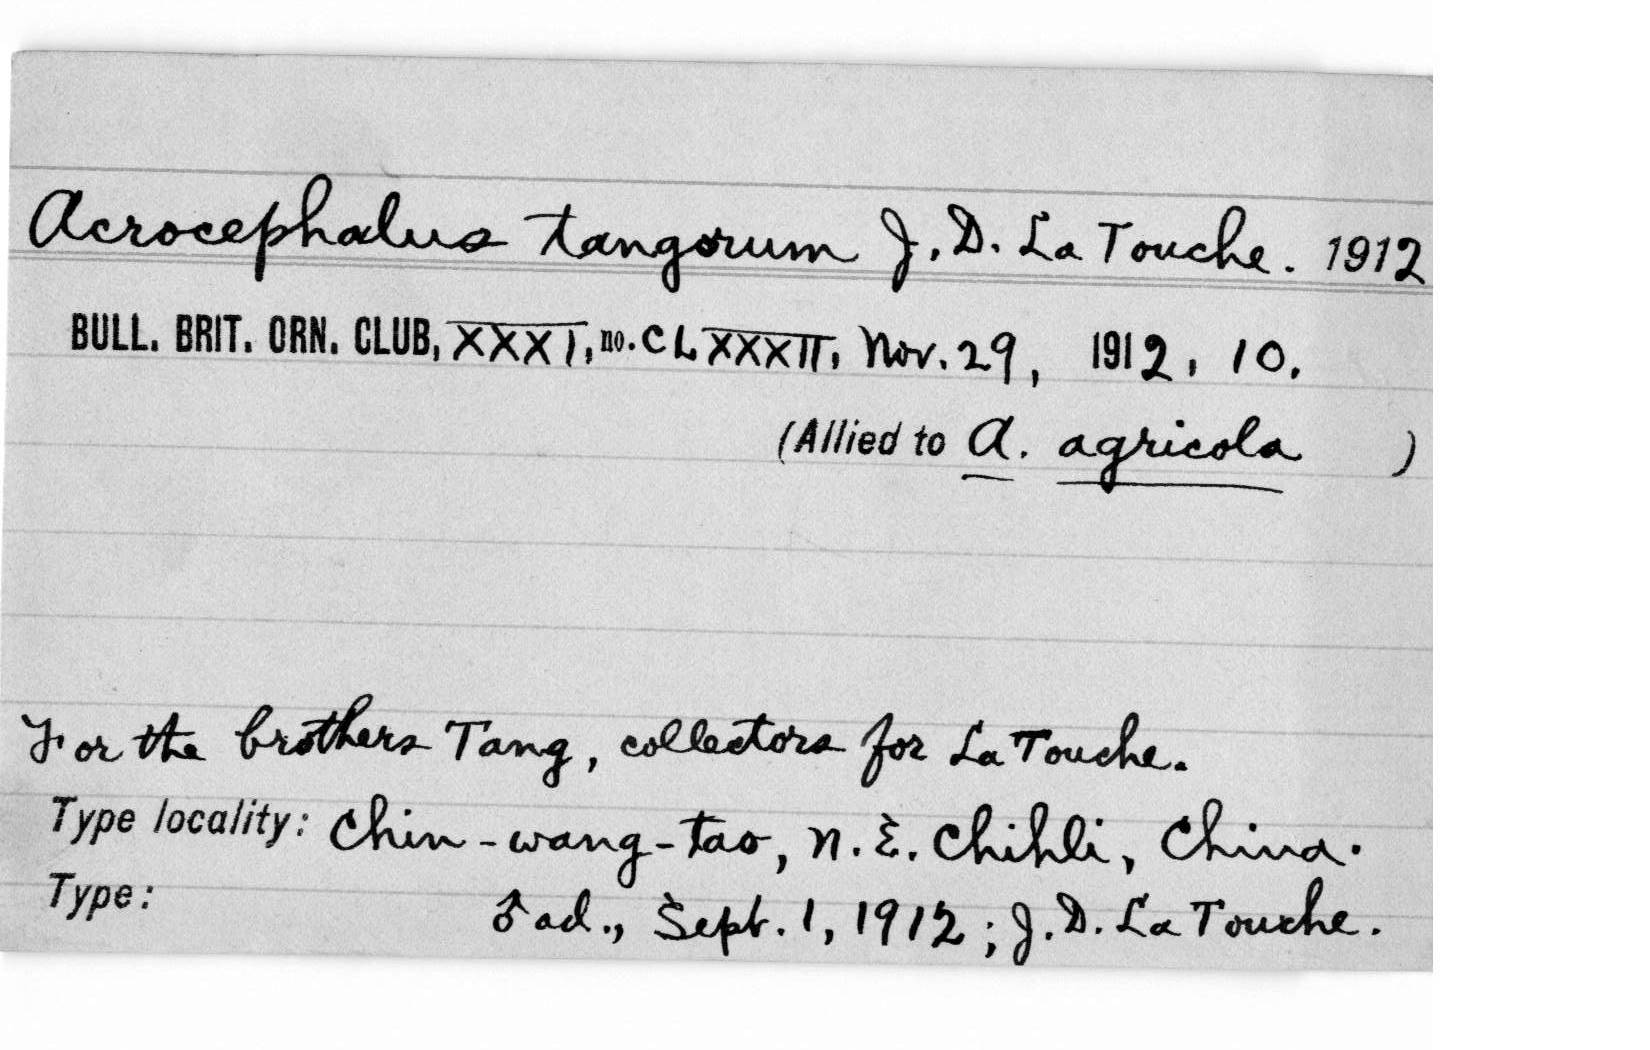 Acrocephalus tangorum J. D. La Touche. 1912
BULL. BRIT. ORN. CLUB, XXXI, no. CLXXXII, Nov. 29, 1912, 10.
(Allied to A. agricola )
For the brothers Tang, collectors for La Touche.
Type locality: Chin-wang-tao, N. E. Chihli, China.
Type: ♂ ad., Sept. 1, 1912; J. D. La Touche.